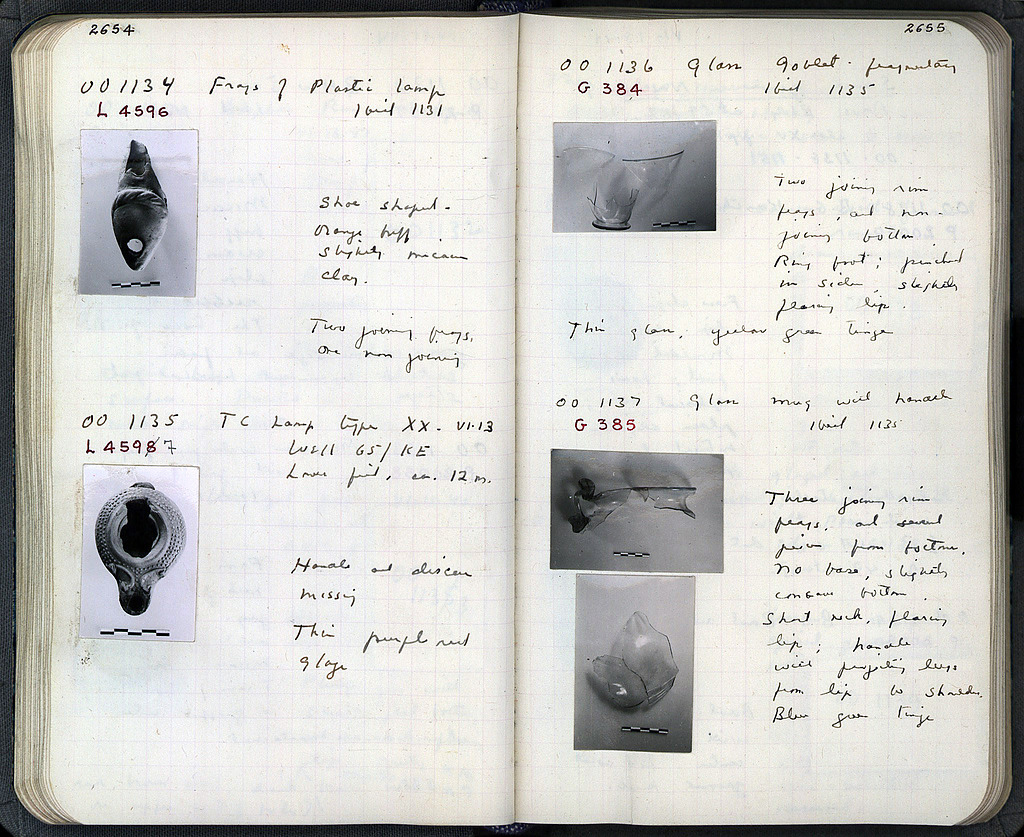 2654
OO 1134 Frags of Plastic lamp
L 4596 Ibid 1131
Shoe shaped.
Orange buff
slightly micaceous
clay.
Two joining frags,
one non joining
OO 1135 TC Lamp type XX. VI.13
L 45987 Well GS/KE
Lower fill, ca. 12 m.
Handle and discus
missing
Thin purple red
glaze
2655
OO 1136 Glass Goblet - fragmentary
G 384 Ibid 1135
Two joining rim
frags and non-
joining bottom
Ring foot; pinched
in sides, slightly
flaring lip.
Thin glass, yellow green tinge
OO 1137 Glass mug with handle
G 385 Ibid 1135
Three joining rim
frags, and several
pieces from bottom,
no base, slightly
concave bottom.
Short neck, flaring
lip; handle
with projecting
from lip to shoulder.
Blue green tinge